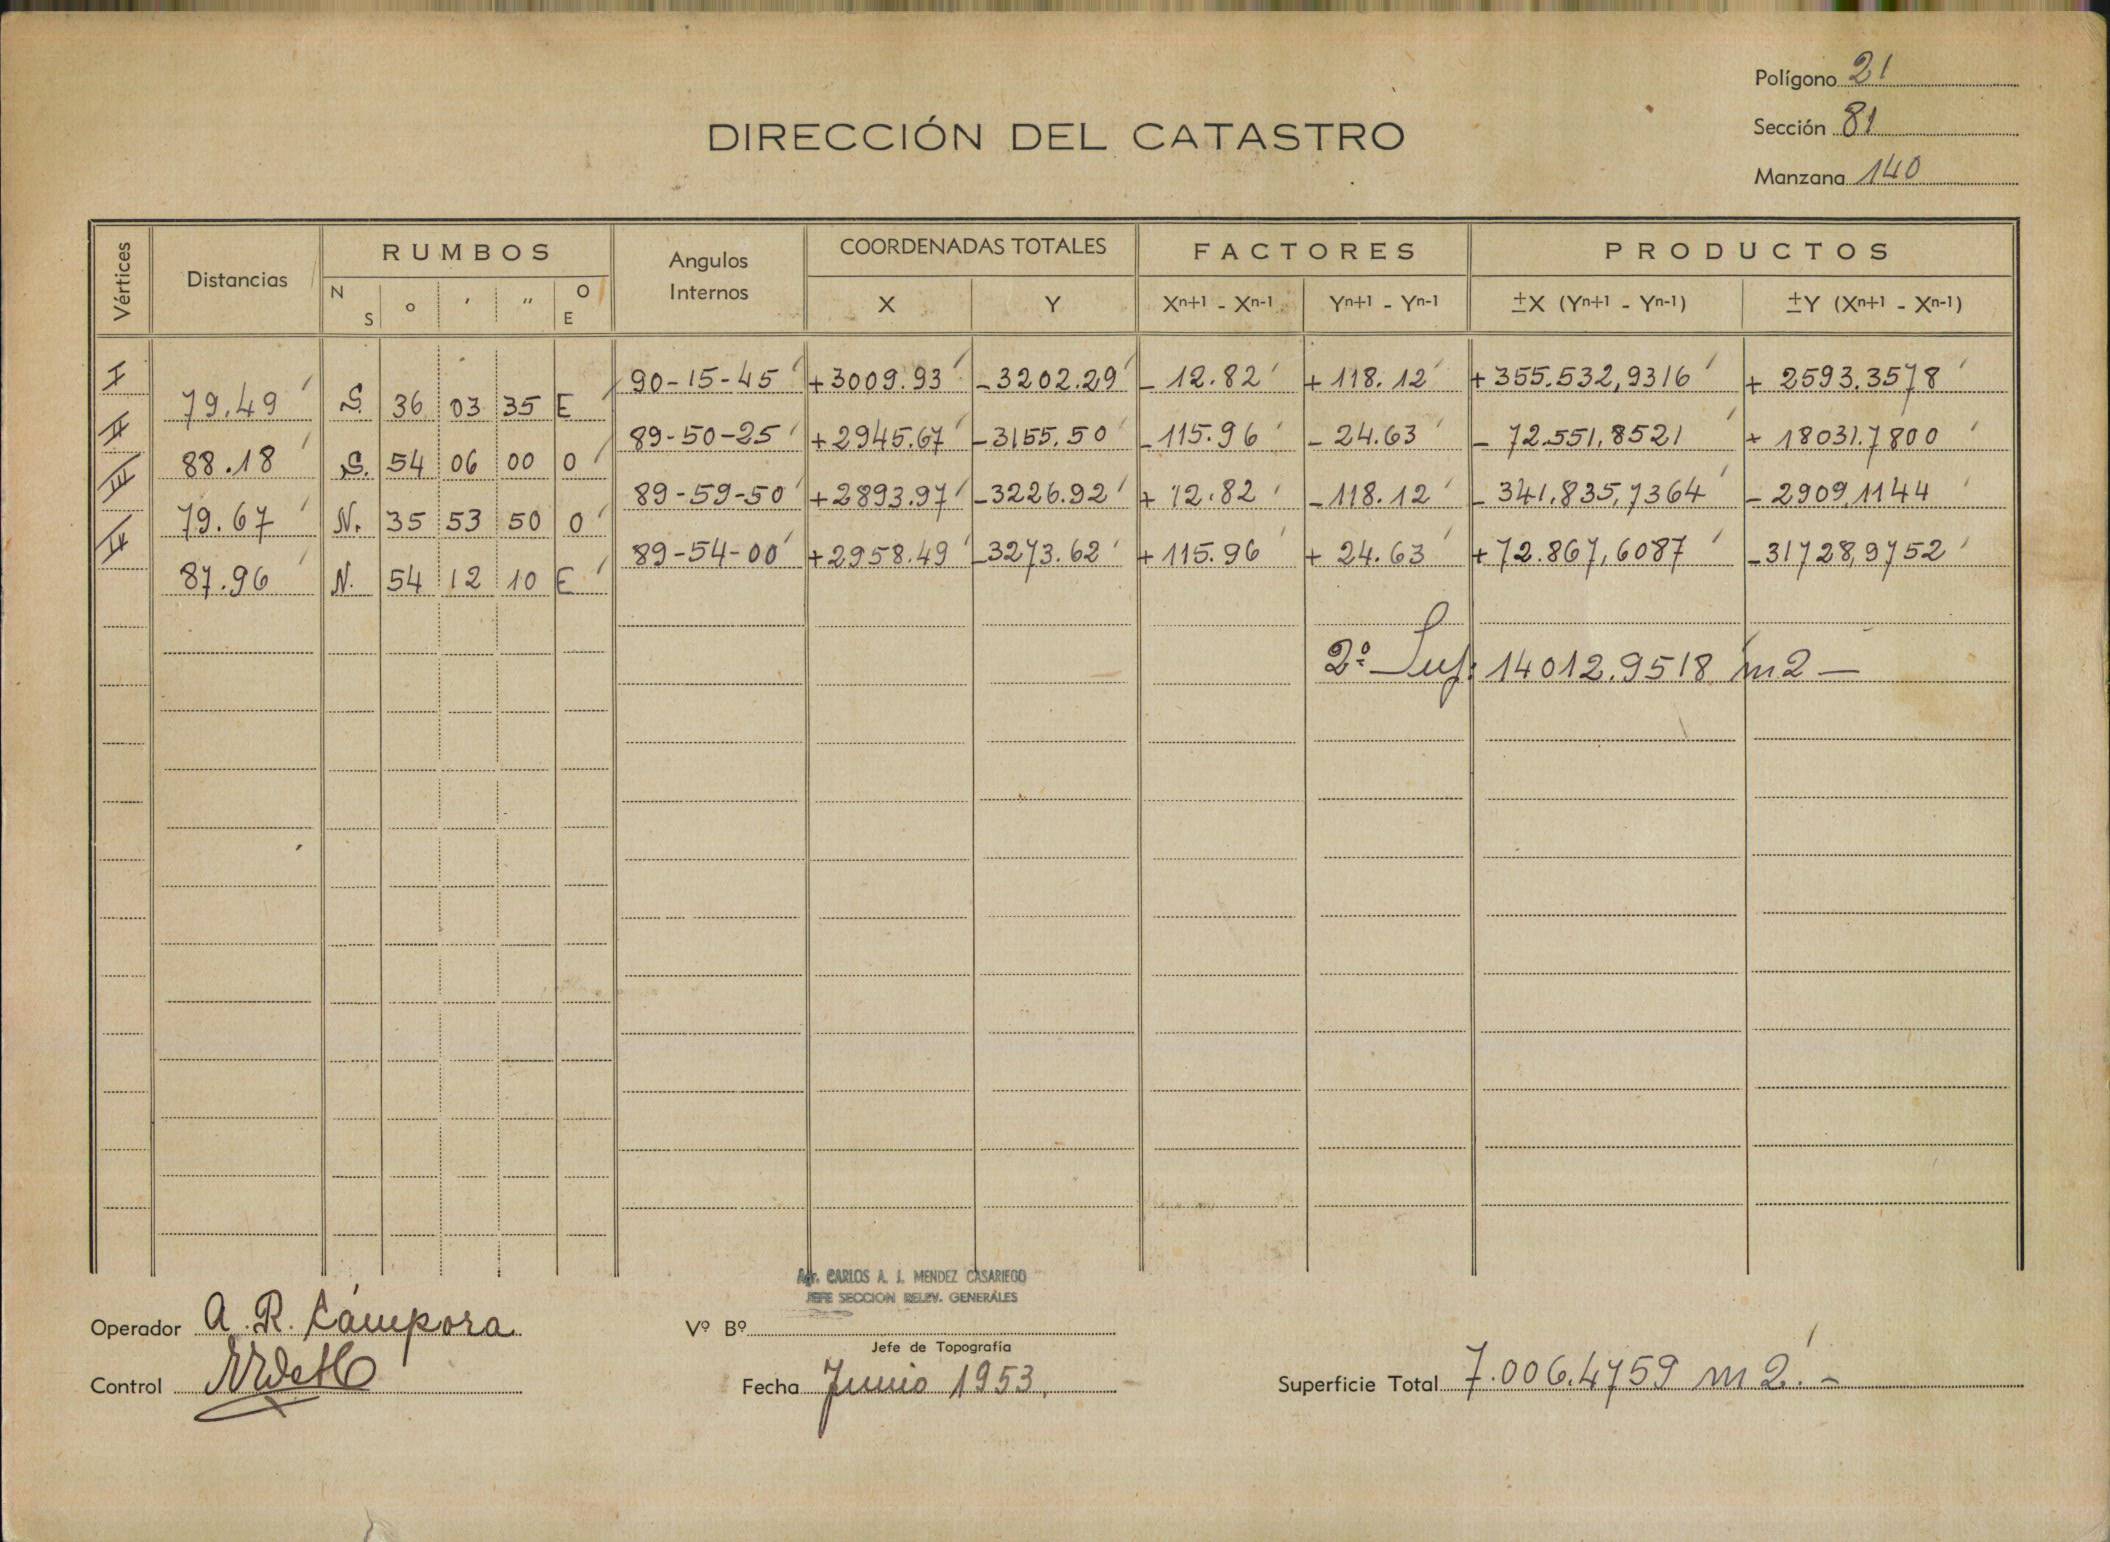 Polígono 21
Sección 81
Manzana 140
DIRECCIÓN DEL CATASTRO
Vértices Distancias RUMBOS Angulos Internos COORDENADAS TOTALES FACTORES PRODUCTOS
N S ° ′ ″ O E X Y Xn+1 - Xn-1 Yn+1 - Yn-1 ±X (Yn+1 - Yn-1) ±Y (Xn+1 - Xn-1)
I 90-15-45 +3009.93 -3202.29 - 12.82 + 118.12 +355.532,9316 + 2593.3578
79.49 S. 36 03 35 E
II 89-50-25 +2945.67 -3155.50 -115.96 - 24.63 - 72.551,8521 + 18031.7800
88.18 S. 54 06 00 O
III 89-59-50 +2893.97 -3226.92 + 12.82 -118.12 - 341.835,7364 - 2909,1144
79.67 N. 35 53 50 O
IV 89-54-00 +2958.49 -3273.62 +115.96 + 24.63 +72.867,6087 -31728,9752
87.96 N. 54 12 10 E
2º Sup: 14012.9518 m2 —
Agr. CARLOS A. J. MENDEZ CASARIEGO
JEFE SECCION RELEV. GENERALES
Operador A. R. Cámpora
Vº Bº
Jefe de Topografía
Control
Fecha Junio 1953.
Superficie Total 7.006.4759 m2.-